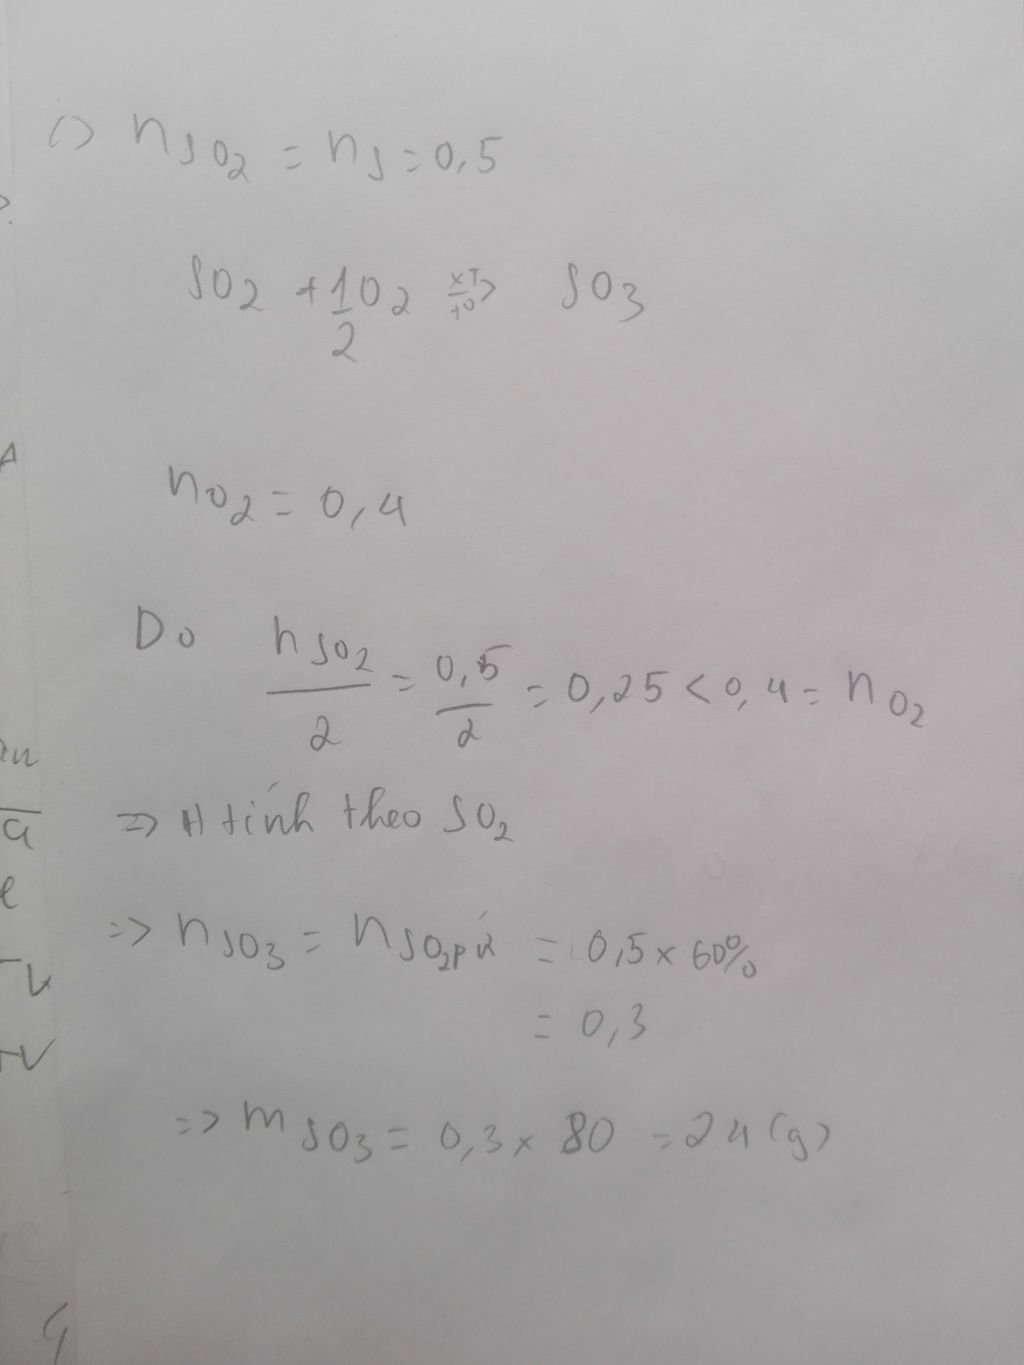 c) nSO2 = nS = 0,5
SO2 + 1/2 O2 xT/t0 → SO3
nO2 = 0,4
Do nSO2/2 = 0,5/2 = 0,25 < 0,4 = nO2
=> H tính theo SO2
=> nSO3 = nSO2 pứ = 0,5 x 60%
= 0,3
=> mSO3 = 0,3 x 80 = 24 (g)
A
a
e